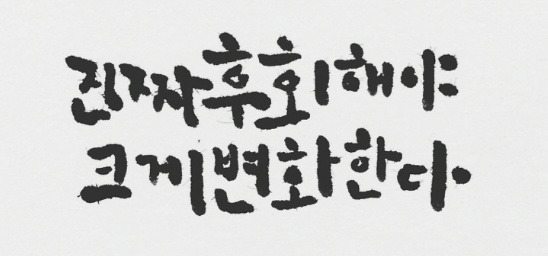 진짜후회해야
크게변화한다.